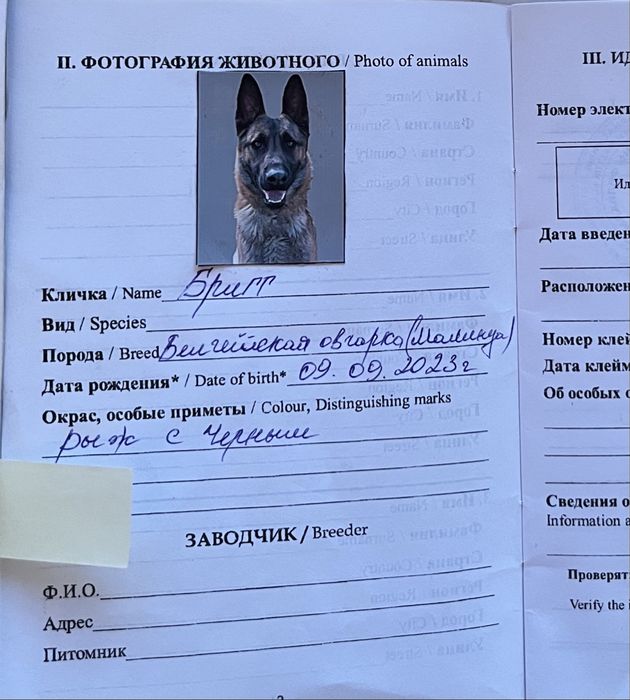 II. ФОТОГРАФИЯ ЖИВОТНОГО / Photo of animals
Кличка / Name Бритт
Вид / Species
Порода / Breed Бельгийская овчарка (Малинуа)
Дата рождения* / Date of birth* 09. 09. 2023г
Окрас, особые приметы / Colour, Distinguishing marks
рыж с Черным
ЗАВОДЧИК / Breeder
Ф.И.О.
Адрес
Питомник
III. ИД
Номер элект
Ил
Дата введен
Расположен
Номер клей
Дата клейм
Об особых о
Сведения о
Information a
Проверят
Verify the i